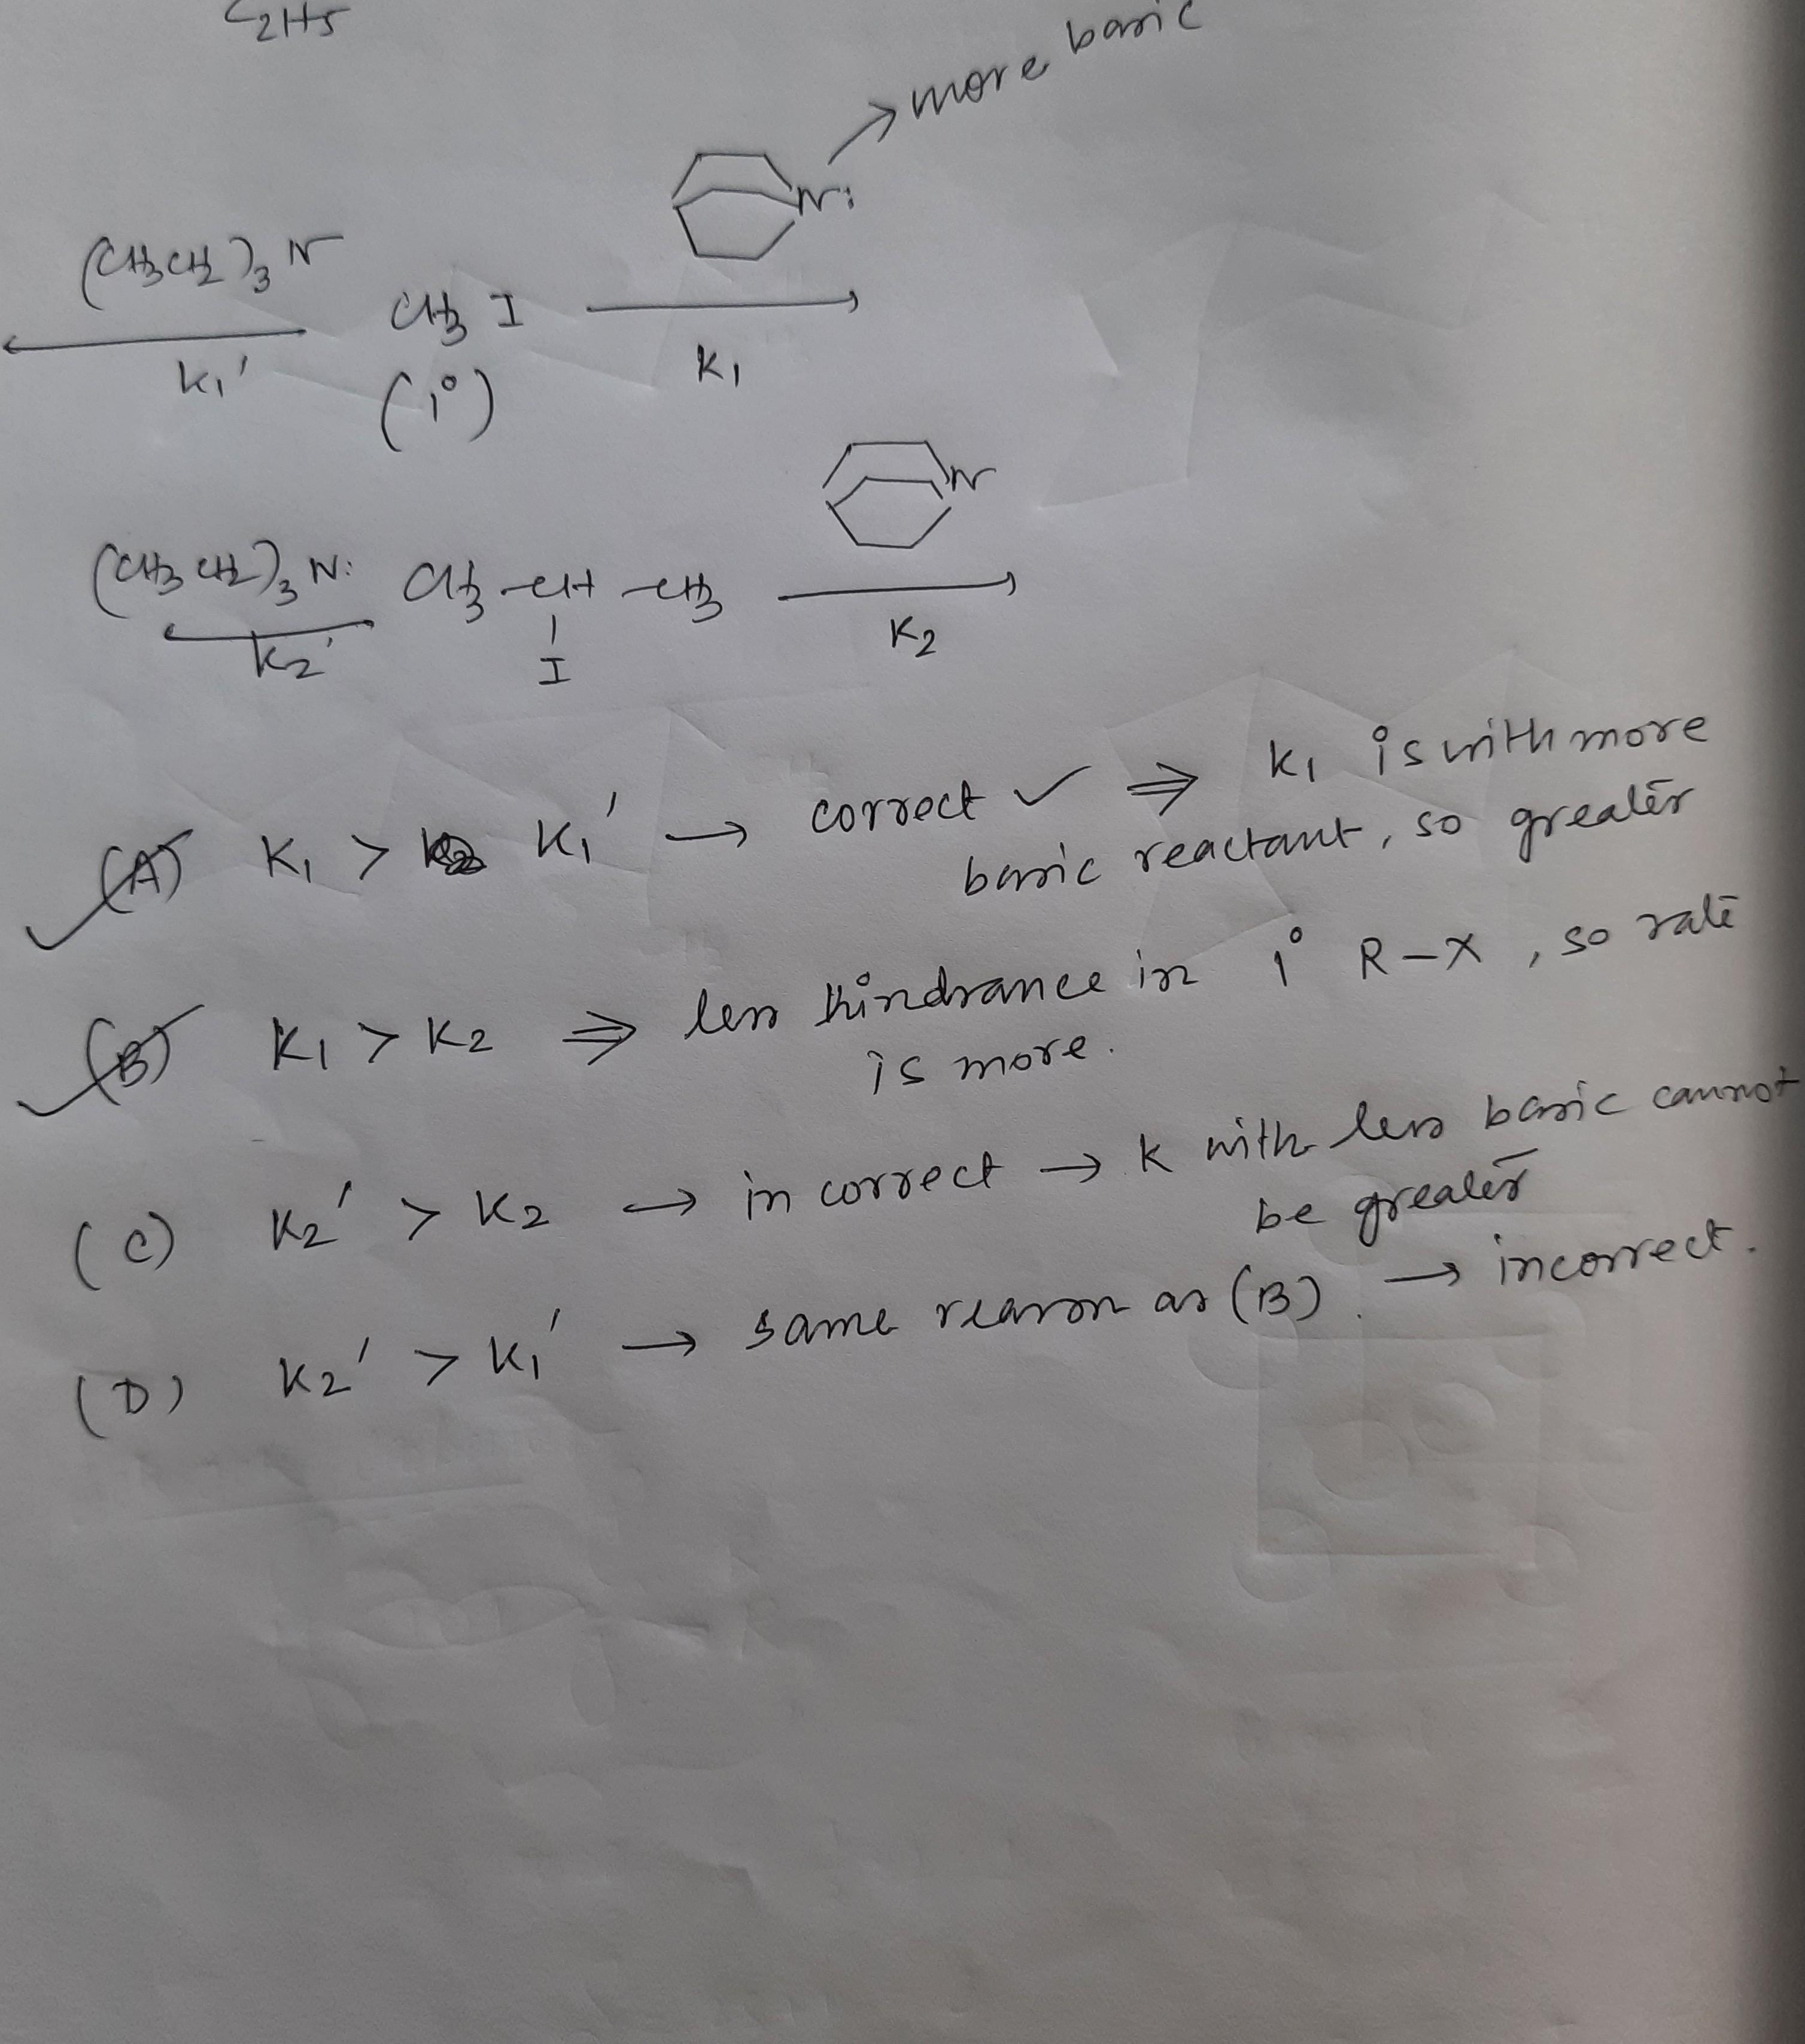 C2H5
more basic
N:
(CH3CH2)3N
CH3 I
K1'
K1
(1°)
N
(CH3CH2)3N: CH3-CH-CH3
I
K2'
K2
(A) K1 > K1' → correct ✓ ⇒ K1 is with more
basic reactant, so greater
(B) K1 > K2 ⇒ less hindrance in 1° R-X, so rate
is more.
(C) K2' > K2 → incorrect → K with less basic cannot
be greater
(D) K2' > K1' → same reason as (B). → incorrect.